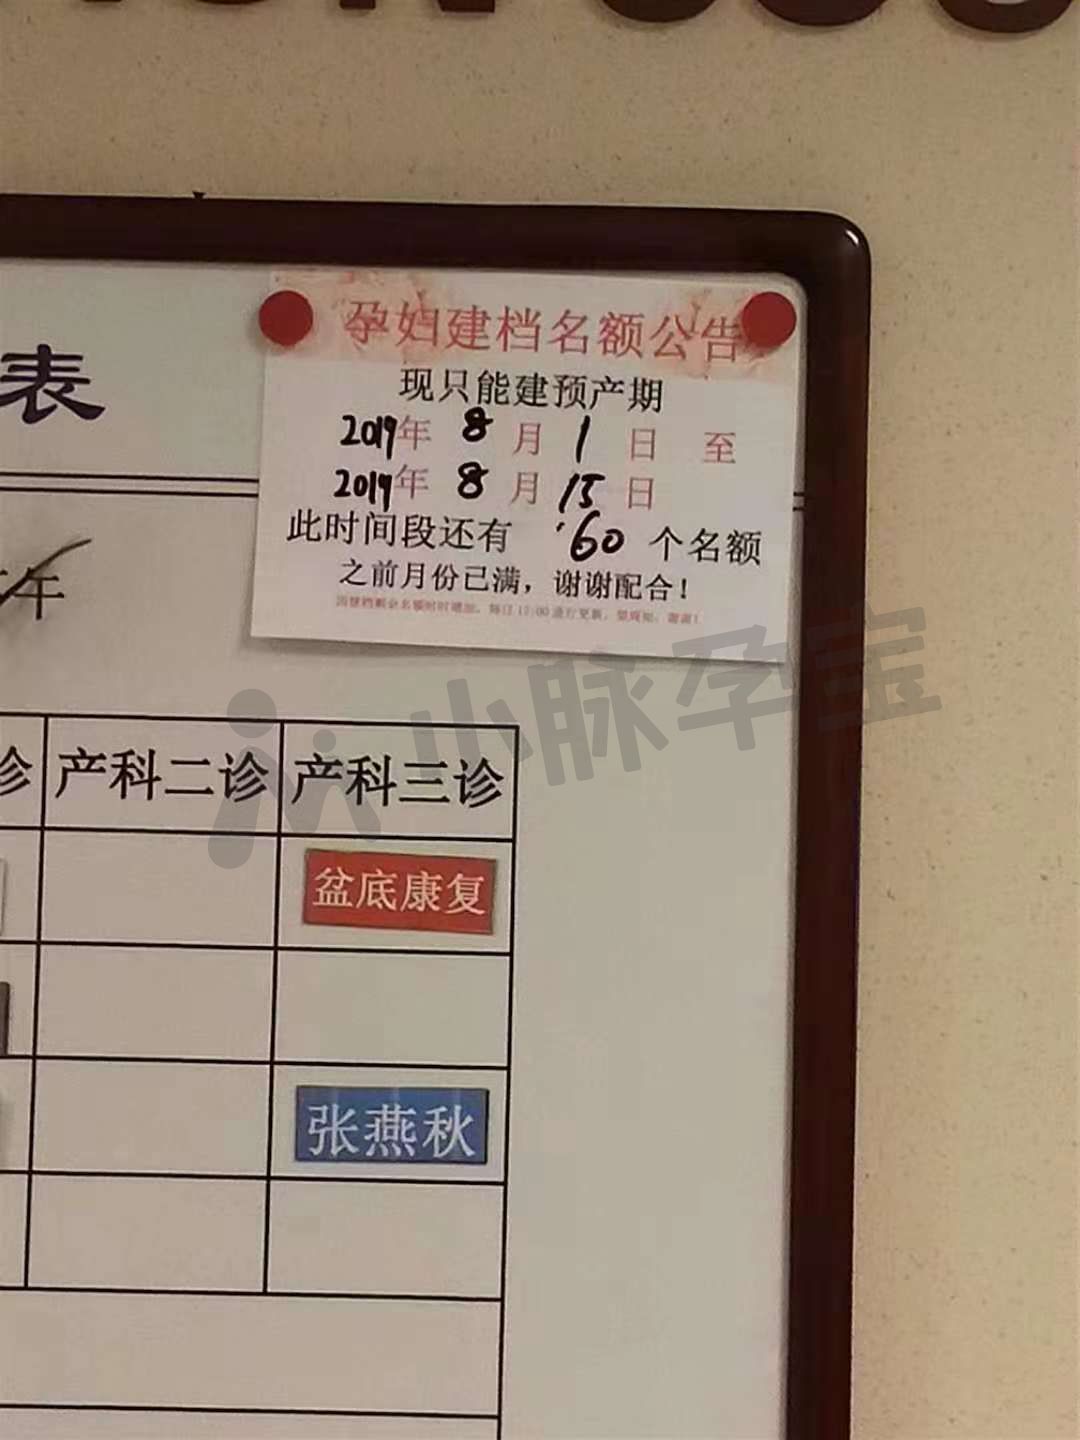 孕妇建档名额公告
现只能建预产期
2019年 8 月 1 日 至
2019年 8 月 15 日
此时间段还有 60 个名额
之前月份已满，谢谢配合！
表
午
诊 产科二诊 产科三诊
盆底康复
张燕秋
小脉孕宝